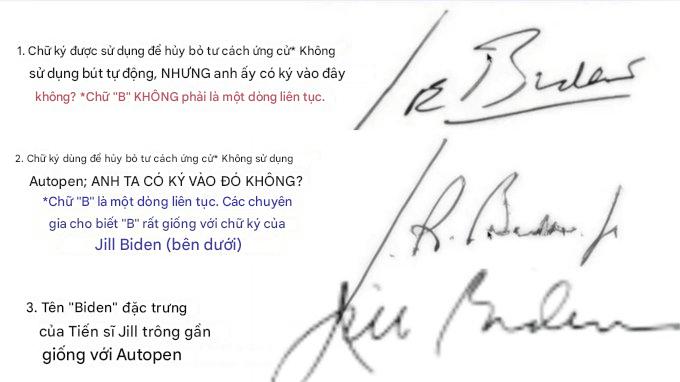 1. Chữ ký được sử dụng để hủy bỏ tư cách ứng cử* Không
sử dụng bút tự động, NHƯNG anh ấy có ký vào đây
không? *Chữ "B" KHÔNG phải là một dòng liên tục.
Joe Biden
2. Chữ ký dùng để hủy bỏ tư cách ứng cử* Không sử dụng
Autopen; ANH TA CÓ KÝ VÀO ĐÓ KHÔNG?
*Chữ "B" là một dòng liên tục. Các chuyên
gia cho biết "B" rất giống với chữ ký của
Jill Biden (bên dưới)
J. R. Biden Jr
3. Tên "Biden" đặc trưng
của Tiến sĩ Jill trông gần
giống với Autopen
Jill Biden